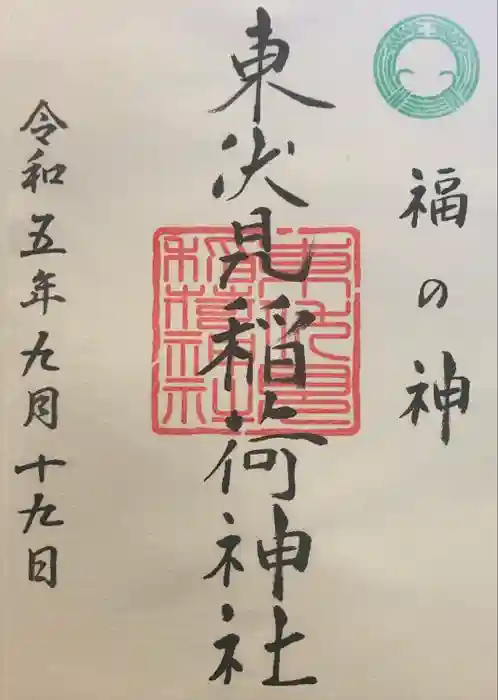 福の神
東伏見稲荷神社
令和五年九月十九日